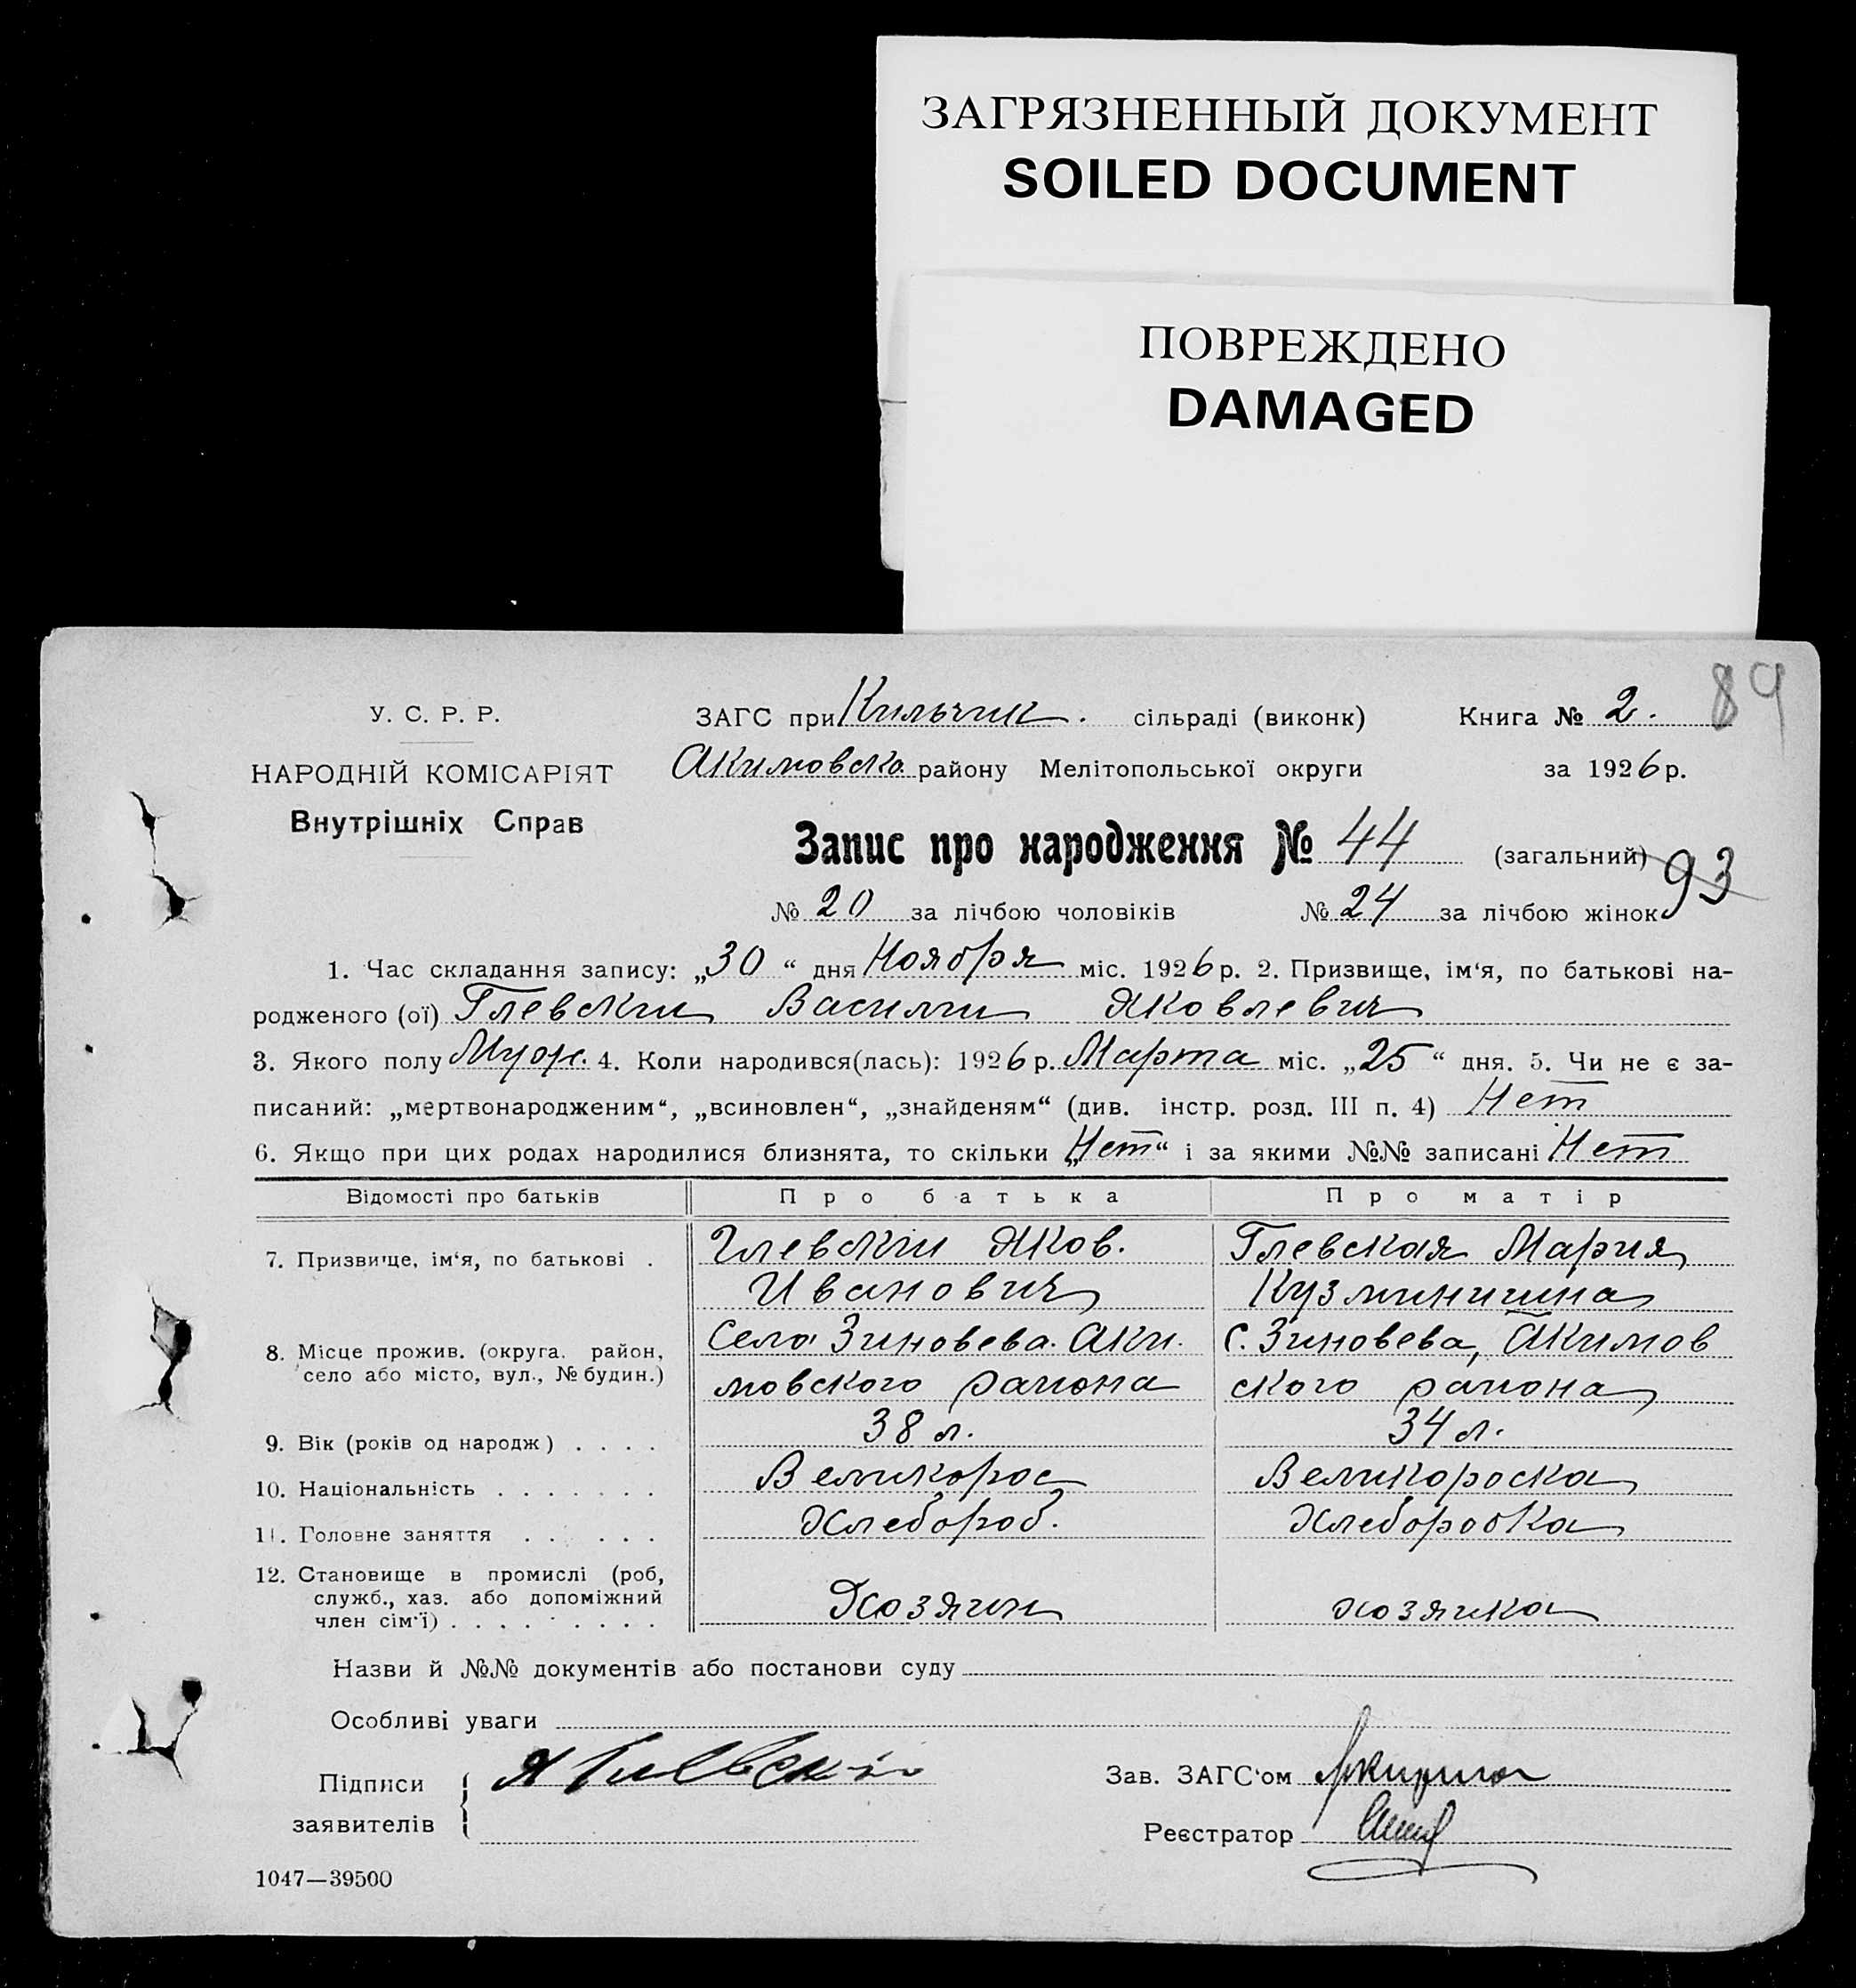 ЗАГРЯЗНЕННЫЙ ДОКУМЕНТ
SOILED DOCUMENT
ПОВРЕЖДЕНО
DAMAGED
89
У. С. Р. Р.
НАРОДНІЙ КОМІСАРІЯТ
Внутрішніх Справ
ЗАГС при Кильчик. сільраді (виконк) Книга № 2.
Акимовско. району Мелітопольської округи за 1926 р.
Запис про народження № 44 (загальний) 93
№ 20 за лічбою чоловіків № 24 за лічбою жінок
1. Час складання запису: „30“ дня Ноября міс. 1926 р. 2. Призвище, ім‘я, по батькові на-
родженого (ої) Глевскии Василии Яковлевич
3. Якого полу Муж. 4. Коли народився(лась): 1926 р. Марта міс. „25“ дня. 5. Чи не є за-
писаний: „мертвонародженим“, „всиновлен“, „знайденям“ (див. інстр. розд. III п. 4) Нет
6. Якщо при цих родах народилися близнята, то скільки „Нет“ і за якими №№ записані Нет
Відомості про батьків Про батька Про матір
7. Призвище, ім‘я, по батькові . Глевскии Яков. Глевская Мария
Иванович Кузминишна
8. Місце прожив. (округа, район, село або місто, вул., № будин.) Село Зиновева. Аки. С. Зиновева, Акимов
мовского раиона ского раиона
9. Вік (років од народж) . . . . 38 л. 34 л.
10. Національність . . . . . . . Великорос Великороска
11. Головне заняття . . . . . . Хлебороб. Хлеборобка
12. Становище в промислі (роб,
служб., хаз. або допоміжний
член сім‘ї) . . . . . . . . . Хозяин хозяика
Назви й №№ документів або постанови суду
Особливі уваги
Підписи заявителів Я Глевский
Зав. ЗАГС‘ом
Реєстратор
1047—39500